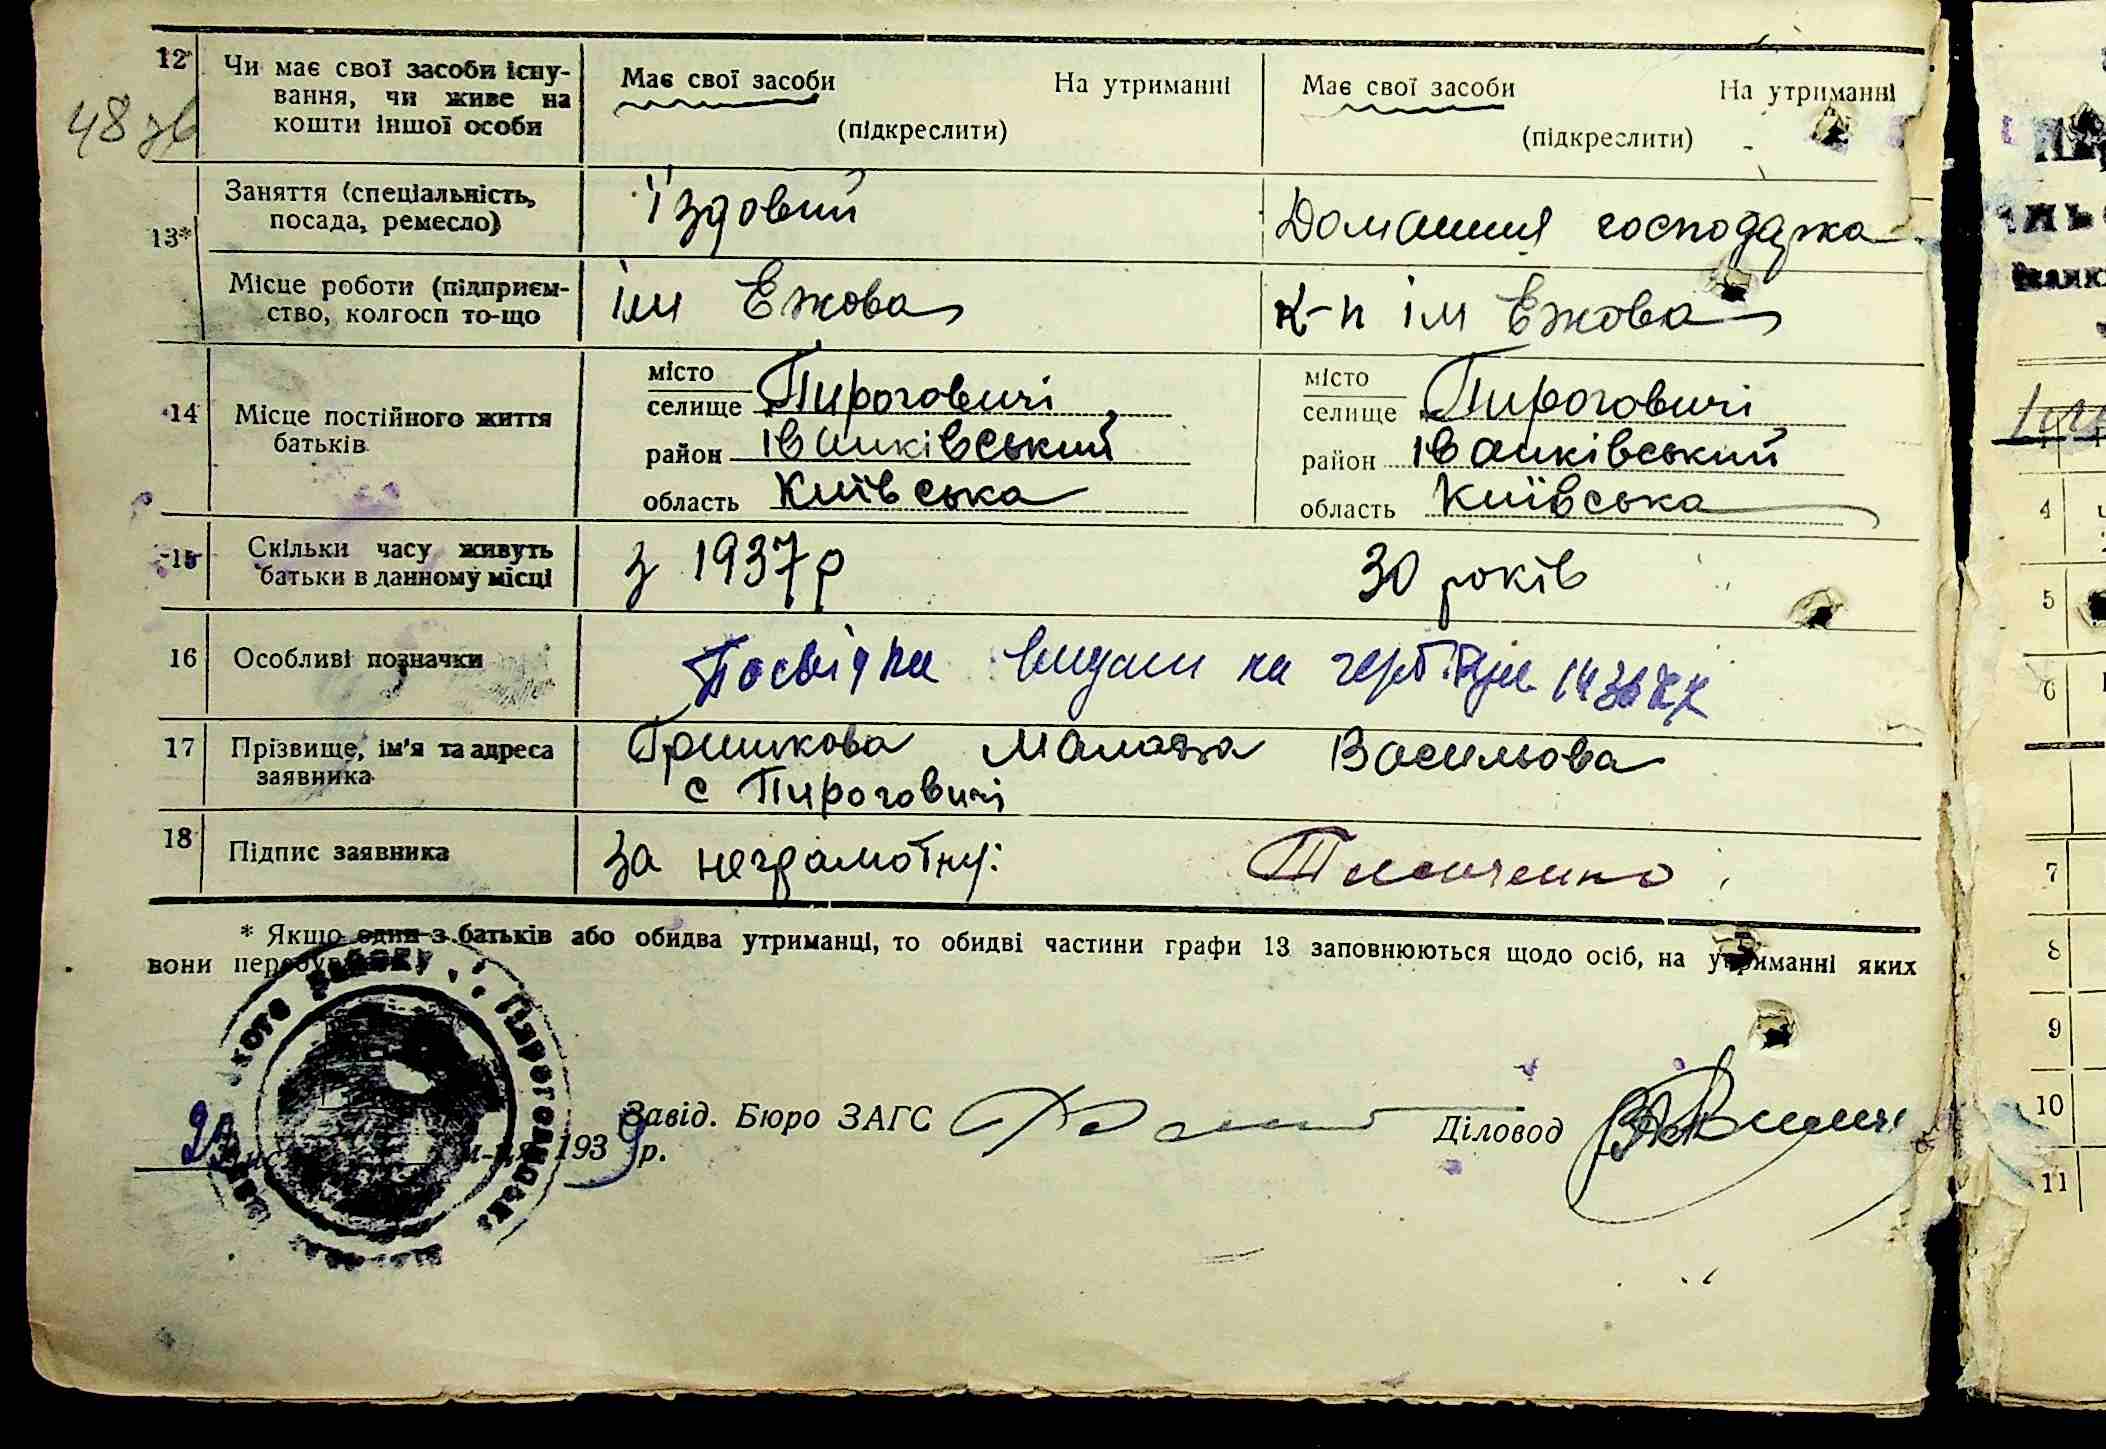 48 зв
12* Чи має свої засоби існу-
вання, чи живе на
кошти іншої особи
Має свої засоби На утриманні
(підкреслити)
Має свої засоби На утриманні
(підкреслити)
13* Заняття (спеціальність,
посада, ремесло)
їздовий
Домашня господарка
Місце роботи (підприєм-
ство, колгосп то-що
ім Ежова
к-п ім Ежова
14 Місце постійного життя
батьків
місто
селище Пироговичі
район Іванківський
область Київська
місто
селище Пироговичі
район Іванківський
область Київська
15 Скільки часу живуть
батьки в данному місці
з 1937 р
30 років
16 Особливі позначки
Посвідка видана на
17 Прізвище, ім'я та адреса
заявника
Гришкова Васильова
с Пироговичі
18 Підпис заявника
за неграмотну:
* Якщо один з батьків або обидва утриманці, то обидві частини графи 13 заповнюються щодо осіб, на утриманні яких
вони
Завід. Бюро ЗАГС
Діловод
1939 р.
4
5
6
7
8
9
10
11